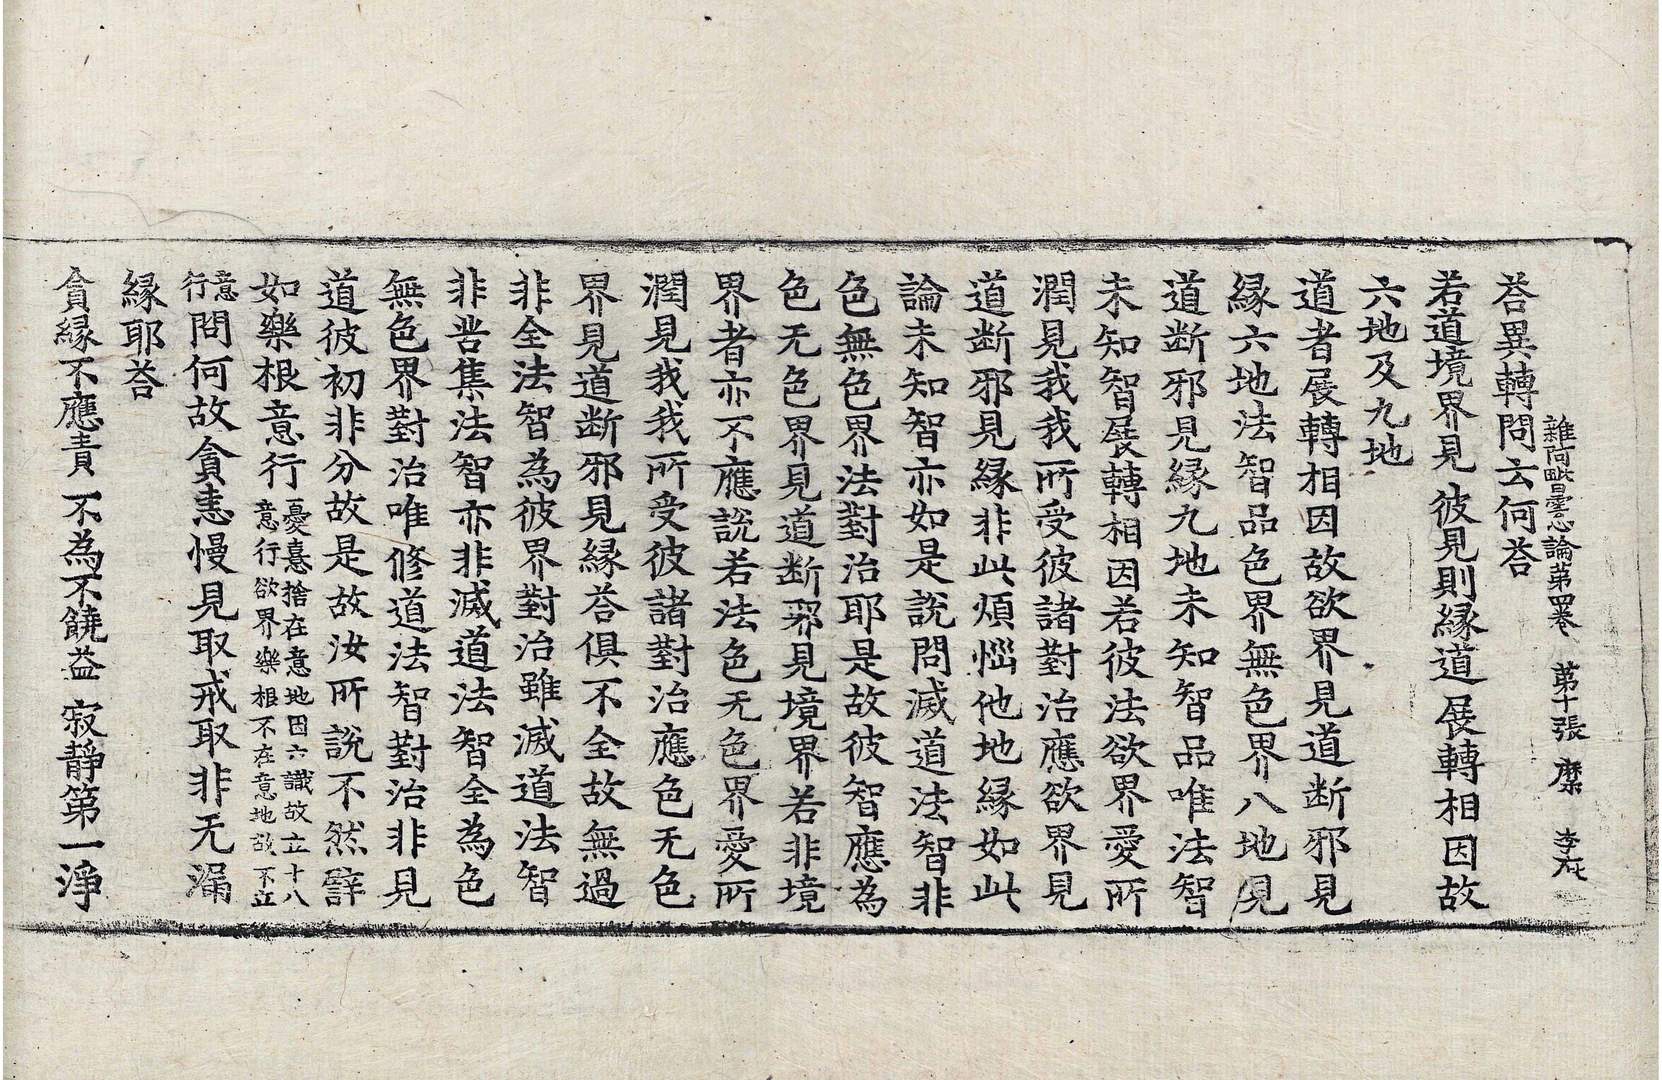 雜阿毗曇心論第四卷　第十張　縻　李在
荅異轉問云何荅
若道境界見　彼見則縁道展轉相因故
六地及九地
道者展轉相因故欲界見道断邪見
縁六地法智品色界無色界八地見
道断邪見縁九地未知智品唯法智
未知智展轉相因若彼法欲界愛所
潤見我我所受彼諸對治應欲界見
道断邪見縁非此煩惱他地縁如此
論未知智亦如是說問滅道法智非
色無色界法對治耶是故彼智應為
色无色界見道断邪見境界若非境
界者亦不應說若法色无色界愛所
潤見我我所受彼諸對治應色无色
界見道断邪見縁荅俱不全故無過
非全法智為彼界對治雖滅道法智
非苦集法智亦非滅道法智全為色
無色界對治唯修道法智對治非見
道彼初非分故是故汝所說不然辟
如樂根意行憂憙捨在意地因六識故立十八
意行欲界樂根不在意地故不立
意行問何故貪恚慢見取戒取非无漏
縁耶荅
貪縁不應責　不為不饒益　寂靜第一淨